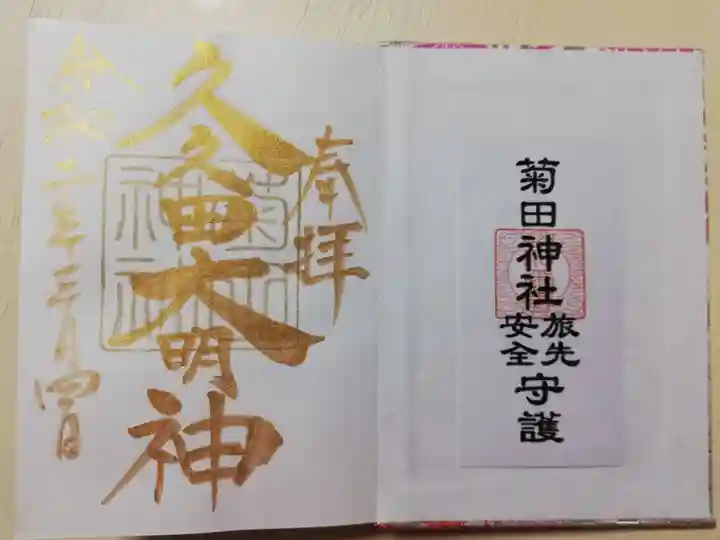 菊田神社
旅先
安全
守護
奉拝
久久田大明神
菊田
神社
令和二年三月四日